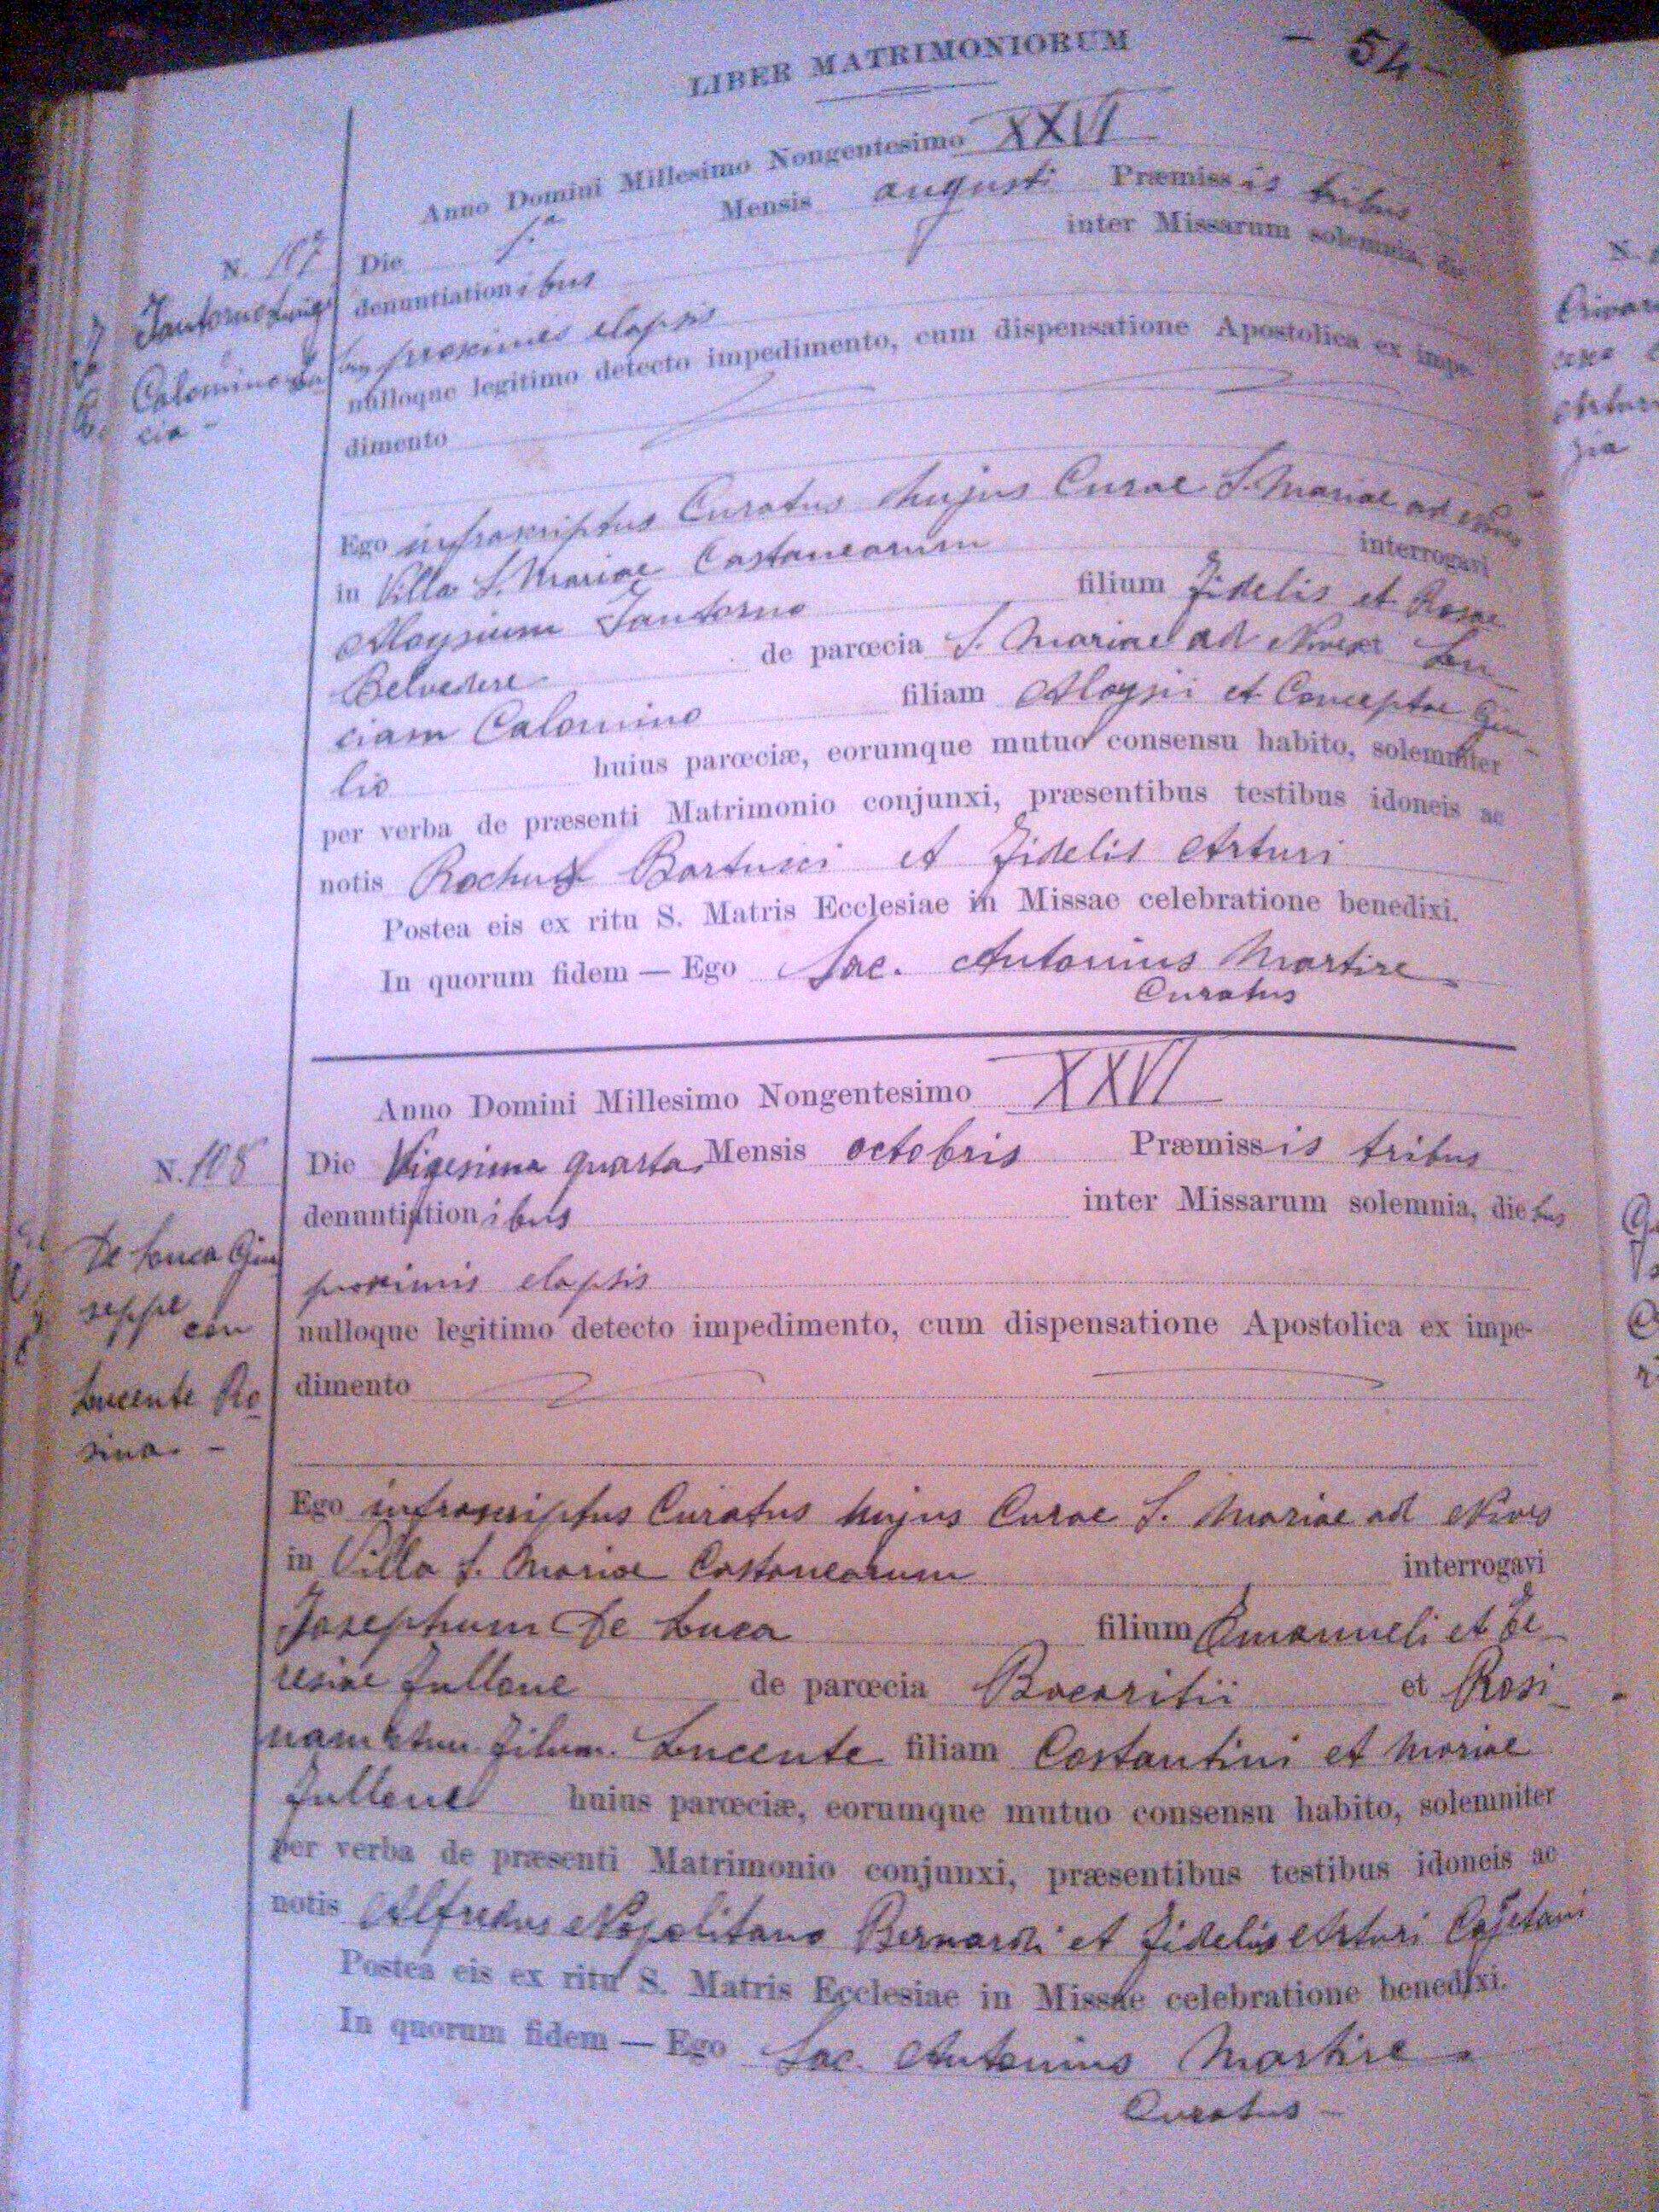 LIBER MATRIMONIORUM
- 54 -
Anno Domini Millesimo Nongentesimo XXVI
N. 107
Die 1.a Mensis augusti Præmissis tribus
denuntiationibus inter Missarum solemnia, die
bus proximis elapsis
nulloque legitimo detecto impedimento, cum dispensatione Apostolica ex impe-
dimento
Calomino Lu
cia -
Ego infrascriptus Curatus hujus Curae S. Mariae ad Nives
in Villa S. Mariae Castanearum interrogavi
Aloysium Santorno filium Fidelis et Rosae
Belvedere de parœcia S. Mariae ad Nives Lu
ciam Calomino filiam Aloysii et Conceptae Giu
lio huius parœciæ, eorumque mutuo consensu habito, solemniter
per verba de præsenti Matrimonio conjunxi, præsentibus testibus idoneis ac
notis Rochus Bartucci et Fidelis Arturi
Postea eis ex ritu S. Matris Ecclesiae in Missae celebratione benedixi.
In quorum fidem — Ego Sac. Antonius Martire
Curatus
Anno Domini Millesimo Nongentesimo XXVI
N. 108
Die Vigesima quarta Mensis octobris Præmissis tribus
denuntiationibus inter Missarum solemnia, diebus
proximis elapsis
nulloque legitimo detecto impedimento, cum dispensatione Apostolica ex impe-
dimento
De Luca Giu
seppe
con
Lucente Ro
sina. -
Ego infrascriptus Curatus hujus Curae S. Mariae ad Nives
in Villa S. Mariae Castanearum interrogavi
Josephum De Luca filium Emanueli et Te
resiae Fullone de parœcia Bucaritii et Rosi
nam Lucente filiam Costantini et Mariae
Fullone huius parœciæ, eorumque mutuo consensu habito, solemniter
per verba de præsenti Matrimonio conjunxi, præsentibus testibus idoneis ac
notis Alfredus Napolitano Bernardi et Fidelis Arturi Cajetani
Postea eis ex ritu S. Matris Ecclesiae in Missae celebratione benedixi.
In quorum fidem — Ego Sac. Antonius Martire
Curatus -